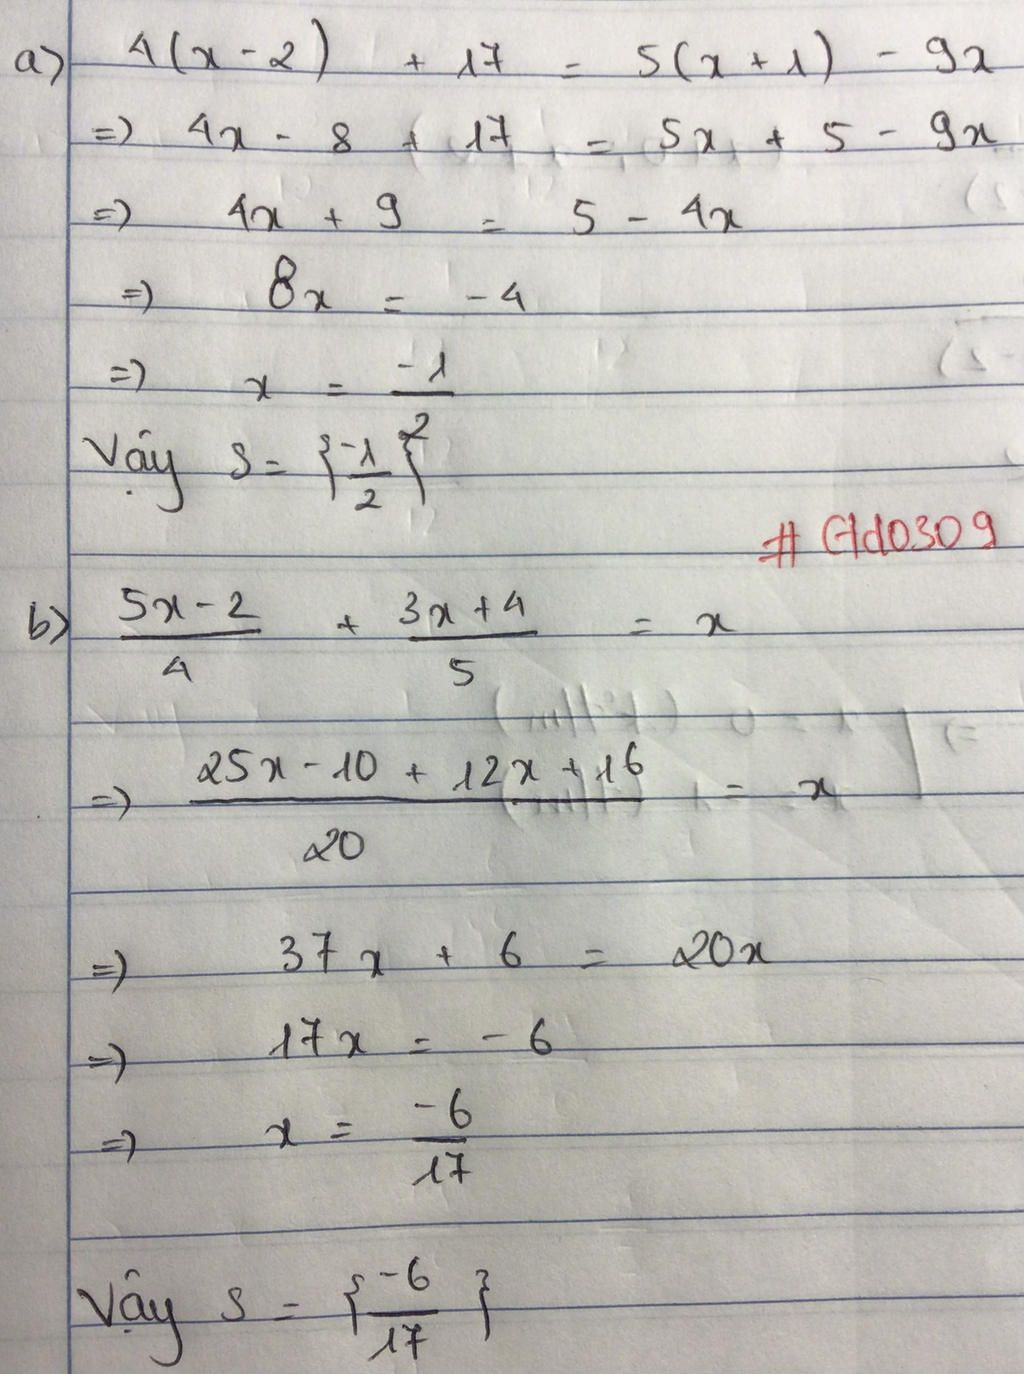 a) 4(x - 2) + 17 = 5(x + 1) - 9x
=) 4x - 8 + 17 = 5x + 5 - 9x
=) 4x + 9 = 5 - 4x
=) 8x = -4
=) x = -1/2
Vậy S = {-1/2}
# Gld0309
b) (5x - 2)/4 + (3x + 4)/5 = x
=) (25x - 10 + 12x + 16)/20 = x
=) 37x + 6 = 20x
=) 17x = -6
=) x = -6/17
Vậy S = {-6/17}